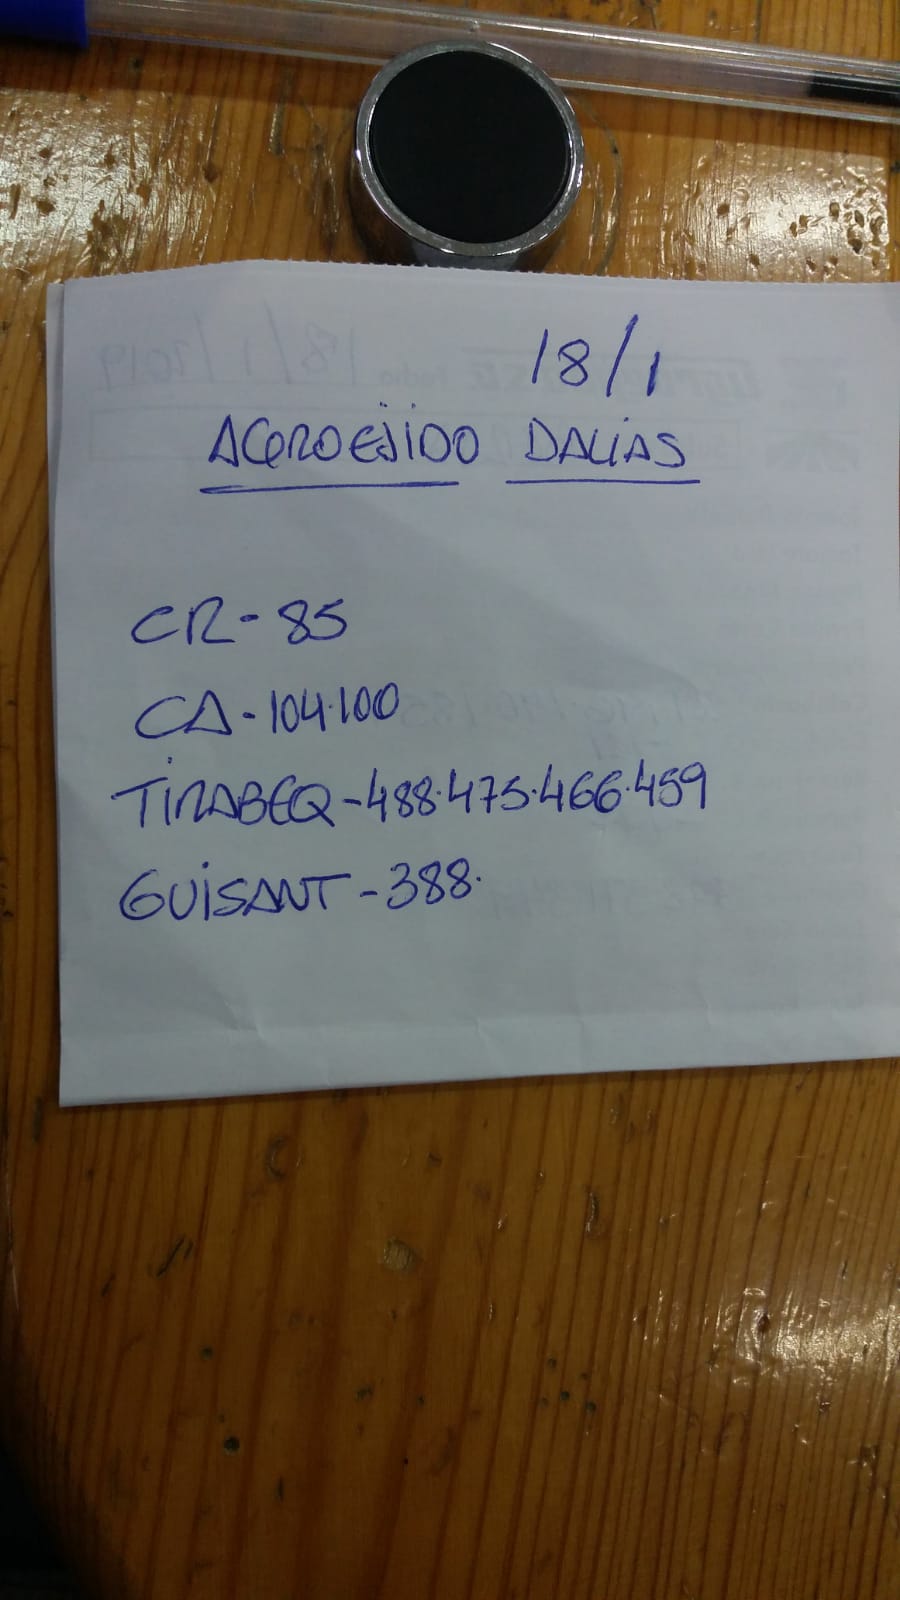 18/1
AGROEJIDO DALIAS
CR-85
CA-104.100
TIRABEQ-488.475.466.459
GUISANT-388.